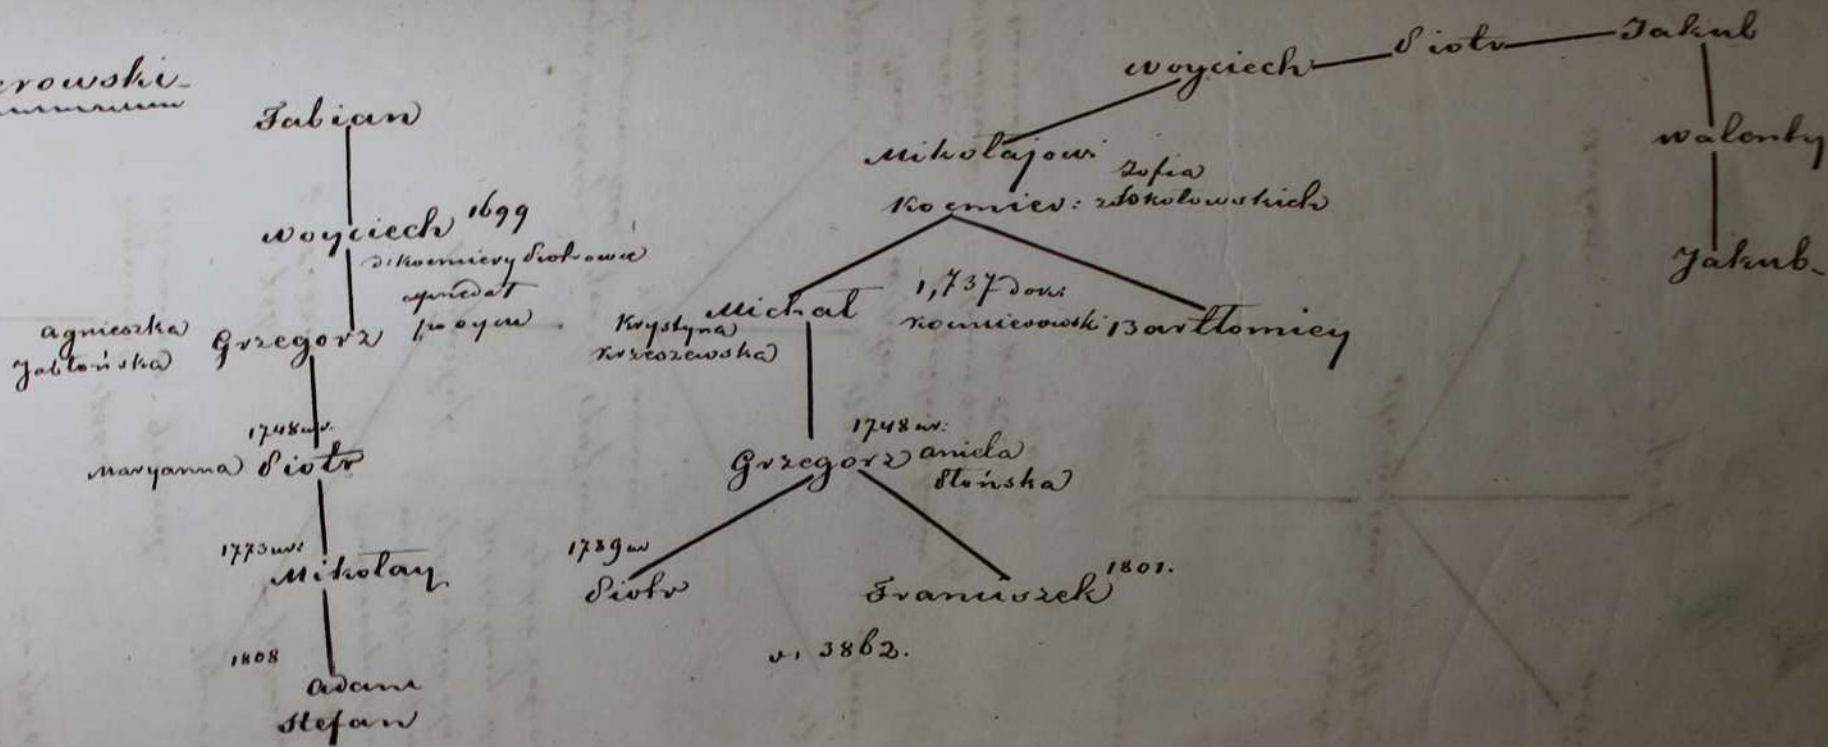 rowski
Fabian
Woyciech 1699
Agnieszka
Jabłońska
Grzegorz
po oycu
1748 ur.
Maryanna Piotr
1773 ur:
Mikołay
1808
Adam
Stefan
Woyciech Piotr Jakub
Walenty
Jakub
Mikołajowi
Zofia
Kocmier: z Sokołowskich
Michał
Krystyna
Krzeszewska
1,737 dow:
Bartłomiey
1748 ur:
Grzegorz Aniela
Słońska
1789 ur
Piotr
Franciszek 1801.
v. 3862.